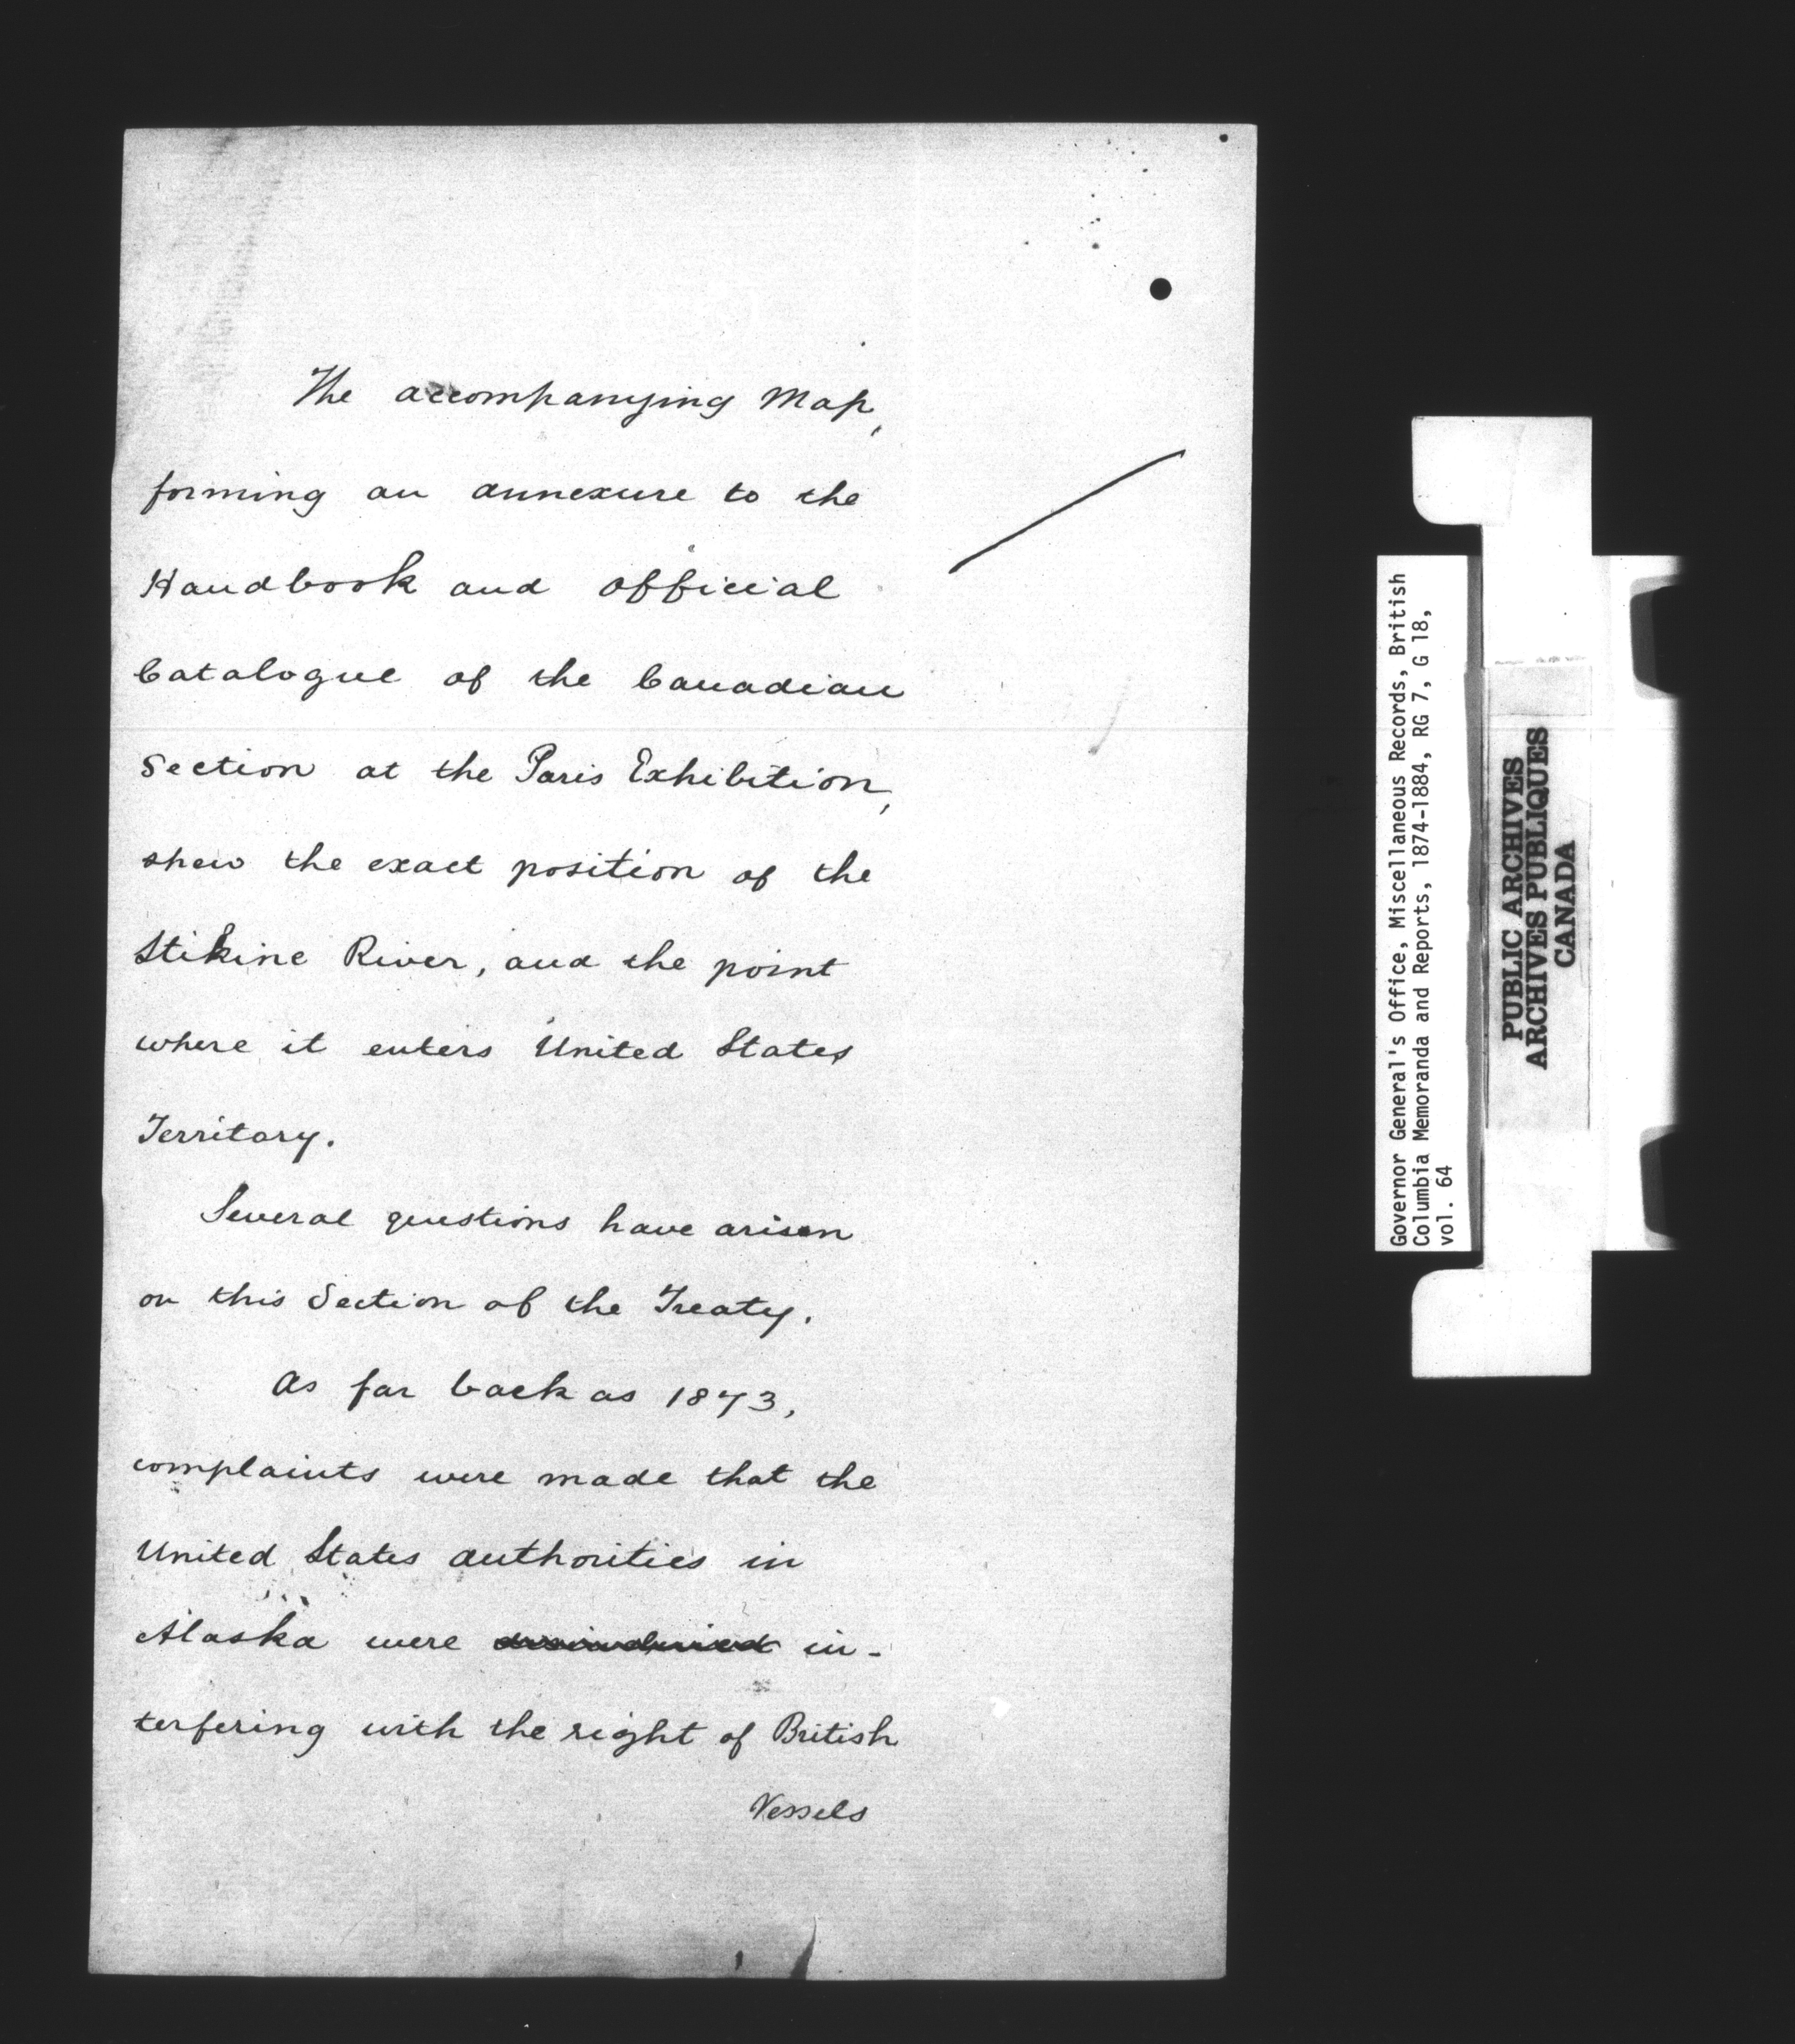 The accompanying Map,
forming an annexure to the
Handbook and Official
Catalogue of the Canadian
Section at the Paris Exhibition,
shew the exact position of the
Stikine River, and the point
where it enters United States
Territory.
Several questions have arisen
on this Section of the Treaty.
As far back as 1873,
complaints were made that the
United States authorities in
Alaska were in-
terfering with the right of British
Vessels
Governor General's Office, Miscellaneous Records, British
Columbia Memoranda and Reports, 1874-1884, RG 7, G 18,
vol. 64
PUBLIC ARCHIVES
ARCHIVES PUBLIQUES
CANADA